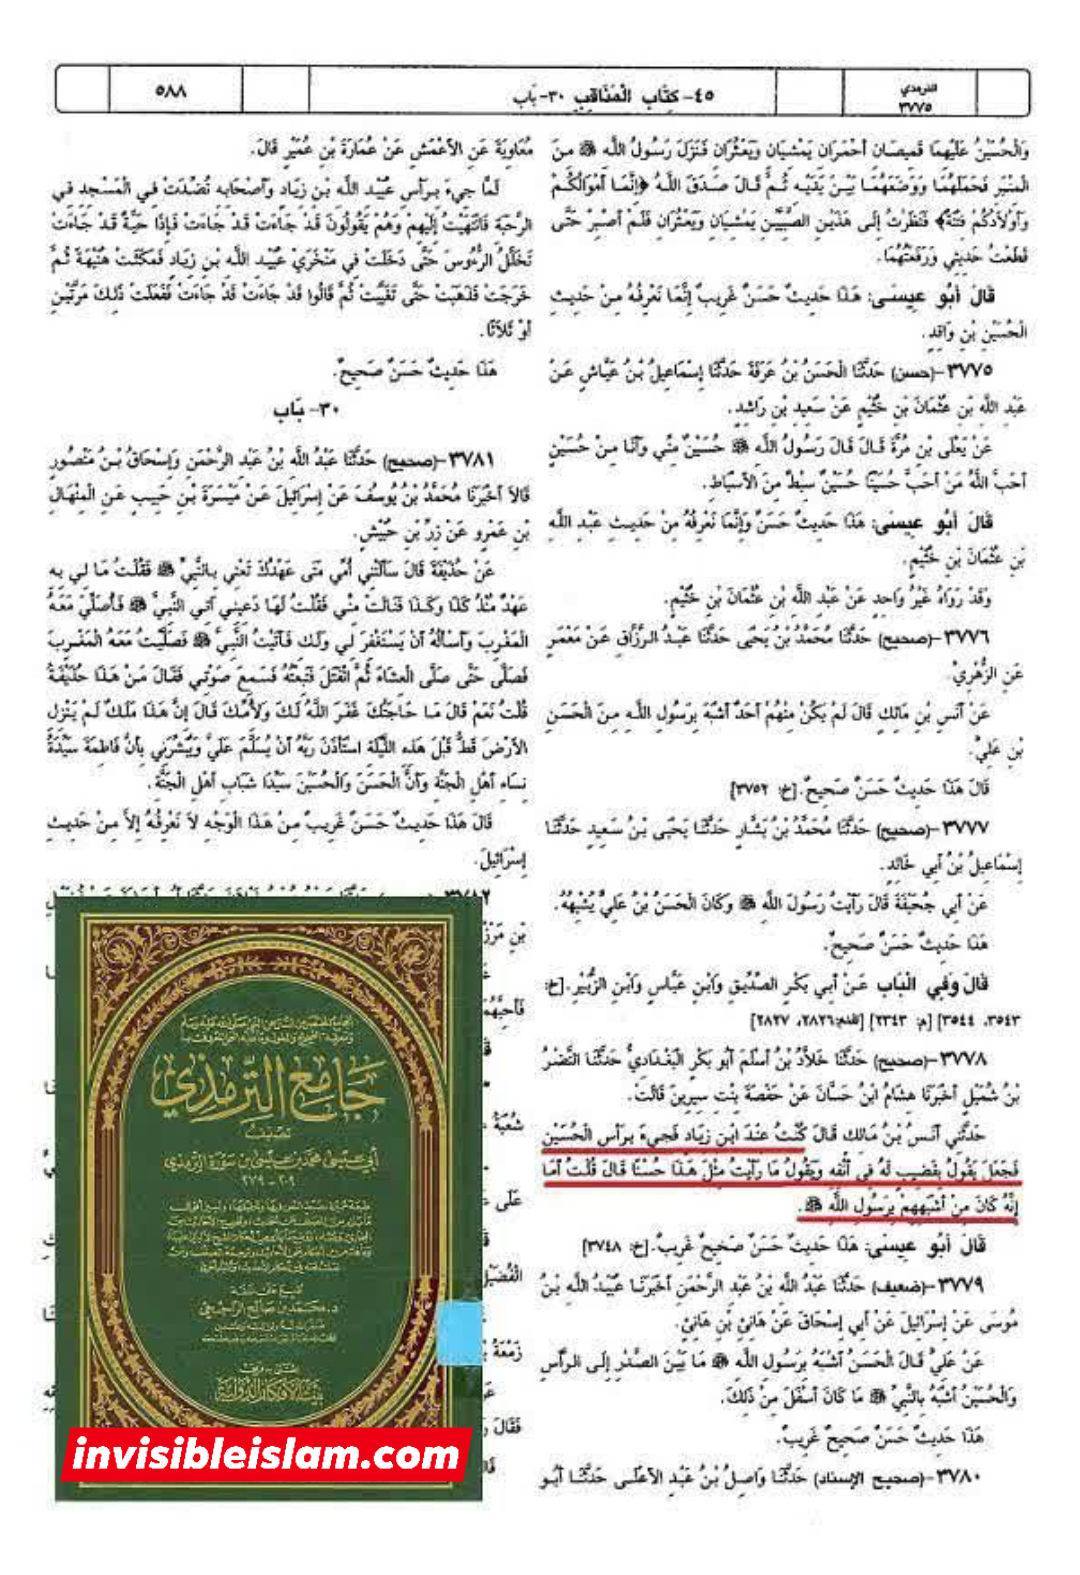 الترمذي
٣٧٧٥
٤٥- كِتَاب الْمَنَاقِبِ ٣٠- بَاب
٥٨٨
وَالْحُسَيْنُ عَلَيْهِمَا قَمِيصَانِ أَحْمَرَانِ يَمْشِيَانِ وَيَعْثُرَانِ فَنَزَلَ رَسُولُ اللَّهِ ﷺ مِنَ
الْمِنْبَرِ فَحَمَلَهُمَا وَوَضَعَهُمَا بَيْنَ يَدَيْهِ ثُمَّ قَالَ صَدَقَ اللَّهُ ﴿إِنَّمَا أَمْوَالُكُمْ
وَأَوْلاَدُكُمْ فِتْنَةٌ﴾ فَنَظَرْتُ إِلَى هَذَيْنِ الصَّبِيَّيْنِ يَمْشِيَانِ وَيَعْثُرَانِ فَلَمْ أَصْبِرْ حَتَّى
قَطَعْتُ حَدِيثِي وَرَفَعْتُهُمَا.
قَالَ أَبُو عِيسَى: هَذَا حَدِيثٌ حَسَنٌ غَرِيبٌ إِنَّمَا نَعْرِفُهُ مِنْ حَدِيثِ
الْحُسَيْنِ بْنِ وَاقِدٍ.
٣٧٧٥-(حسن) حَدَّثَنَا الْحَسَنُ بْنُ عَرَفَةَ حَدَّثَنَا إِسْمَاعِيلُ بْنُ عَيَّاشٍ عَنْ
عَبْدِ اللَّهِ بْنِ عُثْمَانَ بْنِ خُثَيْمٍ عَنْ سَعِيدِ بْنِ رَاشِدٍ.
عَنْ يَعْلَى بْنِ مُرَّةَ قَالَ قَالَ رَسُولُ اللَّهِ ﷺ حُسَيْنٌ مِنِّي وَأَنَا مِنْ حُسَيْنٍ
أَحَبَّ اللَّهُ مَنْ أَحَبَّ حُسَيْنًا حُسَيْنٌ سِبْطٌ مِنَ الأَسْبَاطِ.
قَالَ أَبُو عِيسَى: هَذَا حَدِيثٌ حَسَنٌ وَإِنَّمَا نَعْرِفُهُ مِنْ حَدِيثِ عَبْدِ اللَّهِ
بْنِ عُثْمَانَ بْنِ خُثَيْمٍ.
وَقَدْ رَوَاهُ غَيْرُ وَاحِدٍ عَنْ عَبْدِ اللَّهِ بْنِ عُثْمَانَ بْنِ خُثَيْمٍ.
٣٧٧٦-(صحيح) حَدَّثَنَا مُحَمَّدُ بْنُ يَحْيَى حَدَّثَنَا عَبْدُ الرَّزَّاقِ عَنْ مَعْمَرٍ
عَنِ الزُّهْرِيِّ.
عَنْ أَنَسِ بْنِ مَالِكٍ قَالَ لَمْ يَكُنْ مِنْهُمْ أَحَدٌ أَشْبَهَ بِرَسُولِ اللَّهِ مِنَ الْحَسَنِ
بْنِ عَلِيٍّ.
قَالَ هَذَا حَدِيثٌ حَسَنٌ صَحِيحٌ.[خ: ٣٧٥٢]
٣٧٧٧-(صحيح) حَدَّثَنَا مُحَمَّدُ بْنُ بَشَّارٍ حَدَّثَنَا يَحْيَى بْنُ سَعِيدٍ حَدَّثَنَا
إِسْمَاعِيلُ بْنُ أَبِي خَالِدٍ.
عَنْ أَبِي جُحَيْفَةَ قَالَ رَأَيْتُ رَسُولَ اللَّهِ ﷺ وَكَانَ الْحَسَنُ بْنُ عَلِيٍّ يُشْبِهُهُ.
هَذَا حَدِيثٌ حَسَنٌ صَحِيحٌ.
قَالَ وَفِي الْبَاب عَنْ أَبِي بَكْرٍ الصِّدِّيقِ وَابْنِ عَبَّاسٍ وَابْنِ الزُّبَيْرِ.[خ:
٣٥٤٣، ٣٥٤٤] [م: ٢٣٤٣] [تقدم:٢٨٢٦، ٢٨٢٧]
٣٧٧٨-(صحيح) حَدَّثَنَا خَلاَّدُ بْنُ أَسْلَمَ أَبُو بَكْرٍ الْبَغْدَادِيُّ حَدَّثَنَا النَّضْرُ
بْنُ شُمَيْلٍ أَخْبَرَنَا هِشَامُ ابْنُ حَسَّانَ عَنْ حَفْصَةَ بِنْتِ سِيرِينَ قَالَتْ.
حَدَّثَنِي أَنَسُ بْنُ مَالِكٍ قَالَ كُنْتُ عِنْدَ ابْنِ زِيَادٍ فَجِيءَ بِرَأْسِ الْحُسَيْنِ
فَجَعَلَ يَقُولُ بِقَضِيبٍ لَهُ فِي أَنْفِهِ وَيَقُولُ مَا رَأَيْتُ مِثْلَ هَذَا حُسْنًا قَالَ قُلْتُ أَمَا
إِنَّهُ كَانَ مِنْ أَشْبَهِهِمْ بِرَسُولِ اللَّهِ ﷺ.
قَالَ أَبُو عِيسَى: هَذَا حَدِيثٌ حَسَنٌ صَحِيحٌ غَرِيبٌ.[خ: ٣٧٤٨]
٣٧٧٩-(ضعيف) حَدَّثَنَا عَبْدُ اللَّهِ بْنُ عَبْدِ الرَّحْمَنِ أَخْبَرَنَا عُبَيْدُ اللَّهِ بْنُ
مُوسَى عَنْ إِسْرَائِيلَ عَنْ أَبِي إِسْحَاقَ عَنْ هَانِئِ بْنِ هَانِئٍ.
عَنْ عَلِيٍّ قَالَ الْحَسَنُ أَشْبَهُ بِرَسُولِ اللَّهِ ﷺ مَا بَيْنَ الصَّدْرِ إِلَى الرَّأْسِ
وَالْحُسَيْنُ أَشْبَهُ بِالنَّبِيِّ ﷺ مَا كَانَ أَسْفَلَ مِنْ ذَلِكَ.
هَذَا حَدِيثٌ حَسَنٌ صَحِيحٌ غَرِيبٌ.
٣٧٨٠-(صحيح الإسناد) حَدَّثَنَا وَاصِلُ بْنُ عَبْدِ الأَعْلَى حَدَّثَنَا أَبُو
مُعَاوِيَةَ عَنِ الأَعْمَشِ عَنْ عُمَارَةَ بْنِ عُمَيْرٍ قَالَ.
لَمَّا جِيءَ بِرَأْسِ عُبَيْدِ اللَّهِ بْنِ زِيَادٍ وَأَصْحَابِهِ نُضِّدَتْ فِي الْمَسْجِدِ فِي
الرَّحَبَةِ فَانْتَهَيْتُ إِلَيْهِمْ وَهُمْ يَقُولُونَ قَدْ جَاءَتْ قَدْ جَاءَتْ فَإِذَا حَيَّةٌ قَدْ جَاءَتْ
تَخَلَّلُ الرُّءُوسَ حَتَّى دَخَلَتْ فِي مَنْخَرَيْ عُبَيْدِ اللَّهِ بْنِ زِيَادٍ فَمَكَثَتْ هُنَيْهَةً ثُمَّ
خَرَجَتْ فَذَهَبَتْ حَتَّى تَغَيَّبَتْ ثُمَّ قَالُوا قَدْ جَاءَتْ قَدْ جَاءَتْ فَفَعَلَتْ ذَلِكَ مَرَّتَيْنِ
أَوْ ثَلاَثًا.
هَذَا حَدِيثٌ حَسَنٌ صَحِيحٌ.
٣٠- بَاب
٣٧٨١-(صحيح) حَدَّثَنَا عَبْدُ اللَّهِ بْنُ عَبْدِ الرَّحْمَنِ وَإِسْحَاقُ بْنُ مَنْصُورٍ
قَالاَ أَخْبَرَنَا مُحَمَّدُ بْنُ يُوسُفَ عَنْ إِسْرَائِيلَ عَنْ مَيْسَرَةَ بْنِ حَبِيبٍ عَنِ الْمِنْهَالِ
بْنِ عَمْرٍو عَنْ زِرِّ بْنِ حُبَيْشٍ.
عَنْ حُذَيْفَةَ قَالَ سَأَلَتْنِي أُمِّي مَتَى عَهْدُكَ تَعْنِي بِالنَّبِيِّ ﷺ فَقُلْتُ مَا لِي بِهِ
عَهْدٌ مُنْذُ كَذَا وَكَذَا فَنَالَتْ مِنِّي فَقُلْتُ لَهَا دَعِينِي آتِي النَّبِيَّ ﷺ فَأُصَلِّيَ مَعَهُ
الْمَغْرِبَ وَأَسْأَلُهُ أَنْ يَسْتَغْفِرَ لِي وَلَكِ فَأَتَيْتُ النَّبِيَّ ﷺ فَصَلَّيْتُ مَعَهُ الْمَغْرِبَ
فَصَلَّى حَتَّى صَلَّى الْعِشَاءَ ثُمَّ انْفَتَلَ فَتَبِعْتُهُ فَسَمِعَ صَوْتِي فَقَالَ مَنْ هَذَا حُذَيْفَةُ
قُلْتُ نَعَمْ قَالَ مَا حَاجَتُكَ غَفَرَ اللَّهُ لَكَ وَلأُمِّكَ قَالَ إِنَّ هَذَا مَلَكٌ لَمْ يَنْزِلِ
الأَرْضَ قَطُّ قَبْلَ هَذِهِ اللَّيْلَةِ اسْتَأْذَنَ رَبَّهُ أَنْ يُسَلِّمَ عَلَيَّ وَيُبَشِّرَنِي بِأَنَّ فَاطِمَةَ سَيِّدَةُ
نِسَاءِ أَهْلِ الْجَنَّةِ وَأَنَّ الْحَسَنَ وَالْحُسَيْنَ سَيِّدَا شَبَابِ أَهْلِ الْجَنَّةِ.
قَالَ هَذَا حَدِيثٌ حَسَنٌ غَرِيبٌ مِنْ هَذَا الْوَجْهِ لاَ نَعْرِفُهُ إِلاَّ مِنْ حَدِيثِ
إِسْرَائِيلَ.
بْنِ
شُعْبَةَ
عَلَى
الْفُضَيْلِ
زَمْعَةُ
فَقَالَ
جَامِع التِّرمذي
تصنيف
أبي عيسى محمد بن عيسى بن سورة الترمذي
٢٠٩ - ٢٧٩
بيت الأفكار الدولية
invisibleislam.com